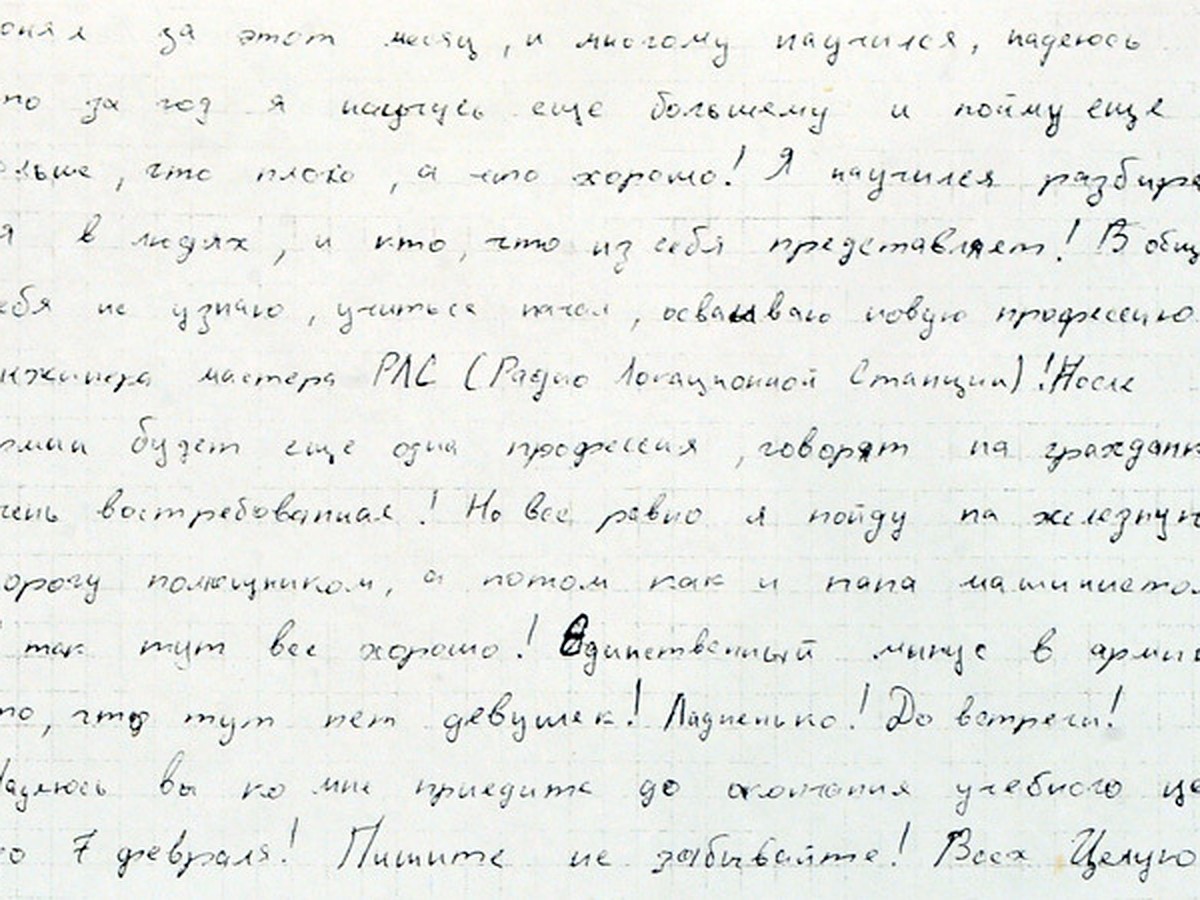 онял за этот месяц, и многому научился, надеюсь
то за год я научусь еще большему и пойму еще
ольше, что плохо, а что хорошо! Я научился разбира
я в людях, и кто, что из себя представляет! В общ
ебя не узнаю, учиться начал, осваиваю новую профессию
нжинера мастера РЛС (Радио Локационной Станции)! После
рмии будет еще одна профессия, говорят на гражданк
чень востребованная! Но все равно я пойду на железную
орогу помощником, а потом как и папа машинистом
так тут все хорошо! Единственный минус в армии
то, что тут нет девушек! Ладненько! До встречи!
Надеюсь вы ко мне приедите до окончания учебного це
о 7 февраля! Пишите не забывайте! Всех Целую